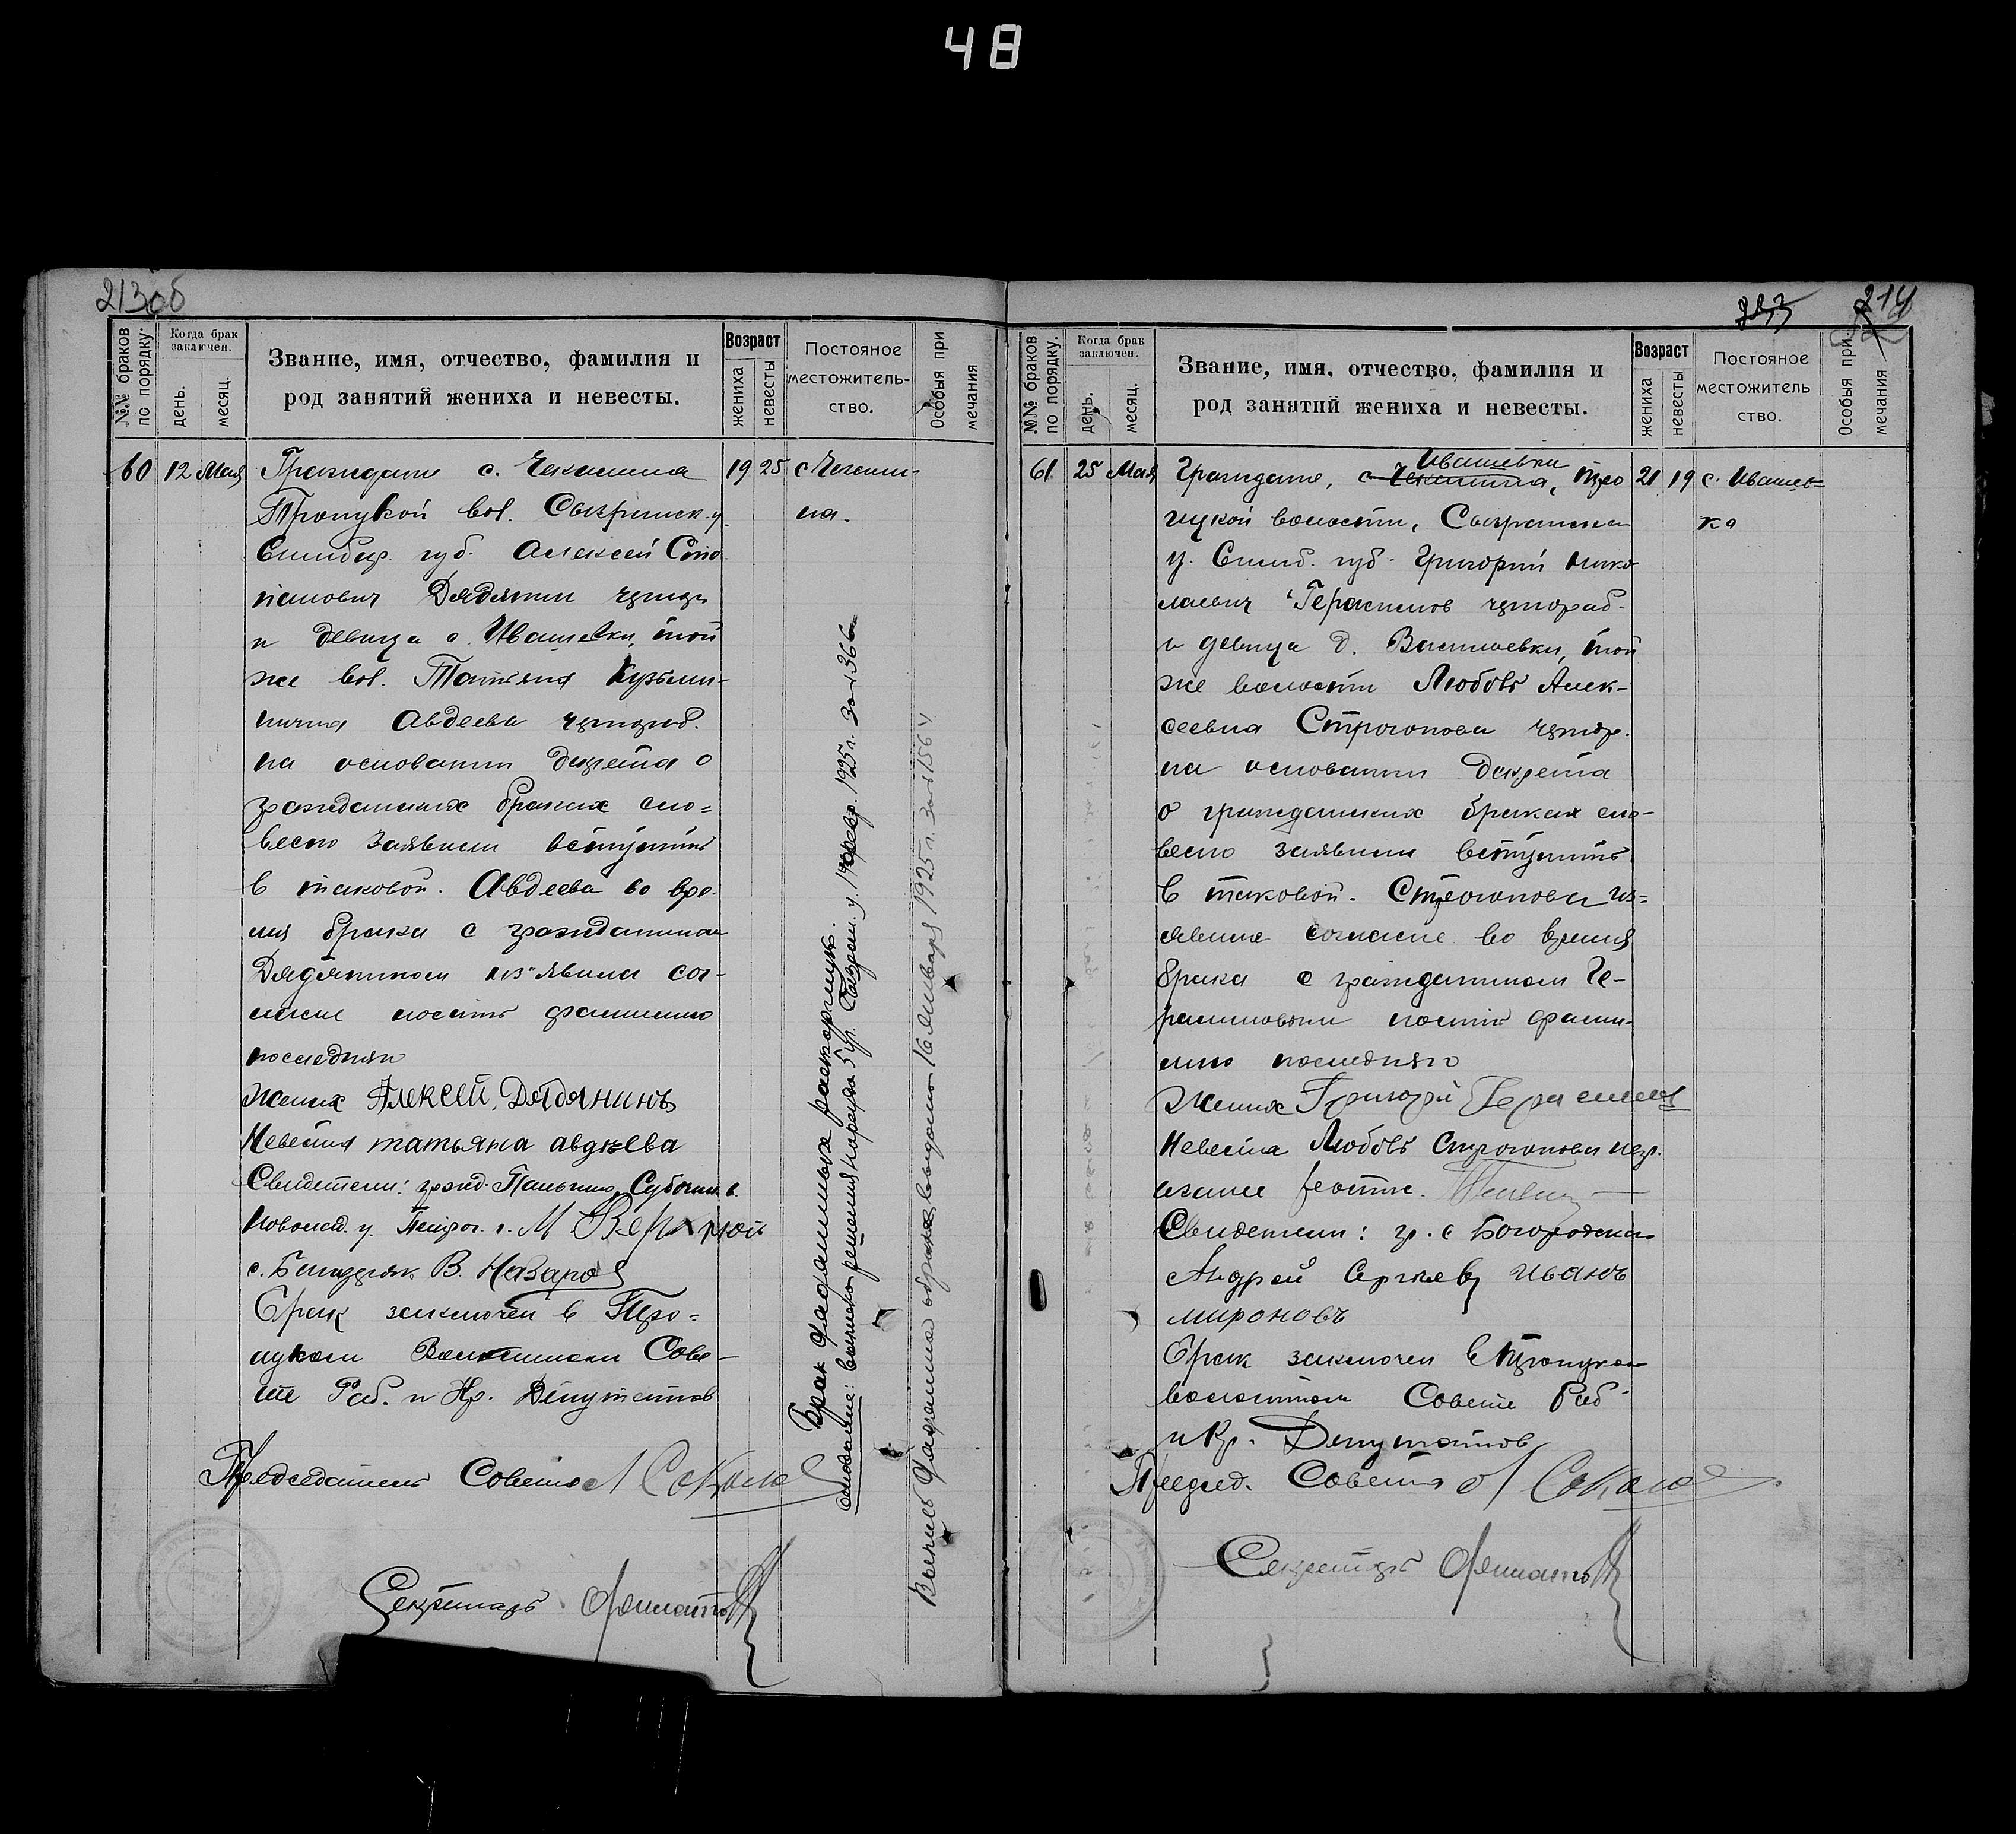 48
213об
№№ браков по порядку.
Когда брак заключен.
день.
месяц.
Звание, имя, отчество, фамилия и
род занятий жениха и невесты.
Возраст
жениха
невесты
Постояное
местожитель-
ство.
Особыя при
мечания
60 12 Мая Граждане с. Чекалина 19 25 с Чекали-
Троицкой вол. Сызранск. у. на.
Симбир. губ. Алексей
Дядянин
и девица с. Ивашевки, той
же вол. Татьяна Кузьми-
нична Авдеева
на основании декрета о
гражданских браках сло=
весно заявили вступить
в таковой. Авдеева во вре-
мя брака с гражданином
Дядянином из"явила сог-
ласие носить фамилию
последняго
Жених Алексей Дядянинъ
Невеста татьяна авдѣева
Свидетели: гражд.
с. В. Назаров
Брак заключен в Тро=
ицком Волостном Сове-
те Раб. и Кр. Депутатов
Председатель Совета
Секретарь
Брак Дядяниных расторгнут.
основание: выписка решения нарсуда 5 уч. Сызран. у. 1925 г.
Выпись Дядянина о браке выдана 16 января 1925 г. за № 156
214
№№ браков по порядку.
Когда брак заключен.
день.
месяц.
Звание, имя, отчество, фамилия и
род занятий жениха и невесты.
Возраст
жениха
невесты
Постояное
местожитель
ство.
Особыя при
мечания
Ивашевки
61 25 Мая Граждане, с Чекалина, Тро 21 19 с. Ивашев=
ицкой волости, Сызранска ка
у. Симб. губ. Григорий Нико
лаевич Герасимов чернораб.
и девица д. Васильевки, той
же волости Любовь Алек-
сеевна Строганова
на основании декрета
о гражданских браках сло-
весно заявили вступить
в таковой. Строганова из=
явила согласие во время
брака с гражданином Ге-
расимовым носить фами-
лию последняго
Жених Григорий Герасимов
Невеста Любовь Строганова
Свидетели: гр. с Богородска
Андрей Сергѣев Иванъ
мироновъ
Брак заключен в Троицком
волостном Совете Раб
и Кр. Депутатов
Председ. Совета
Секретарь